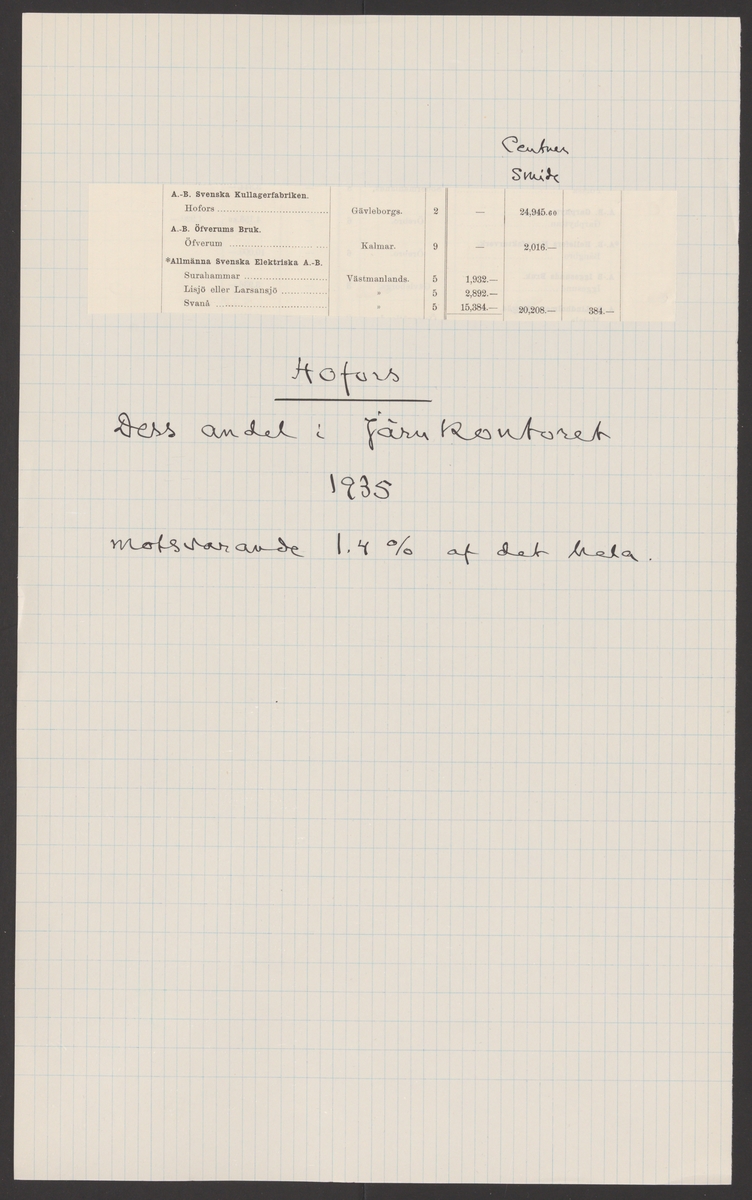 Centner
Smide
A.-B. Svenska Kullagerfabriken.
Hofors ................................ Gävleborgs. 2 — 24,945.60
A.-B. Öfverums Bruk.
Öfverum ............................ Kalmar. 9 — 2,016.—
*Allmänna Svenska Elektriska A.-B.
Surahammar ........................ Västmanlands. 5 1,932.—
Lisjö eller Larsansjö ............. » 5 2,892.—
Svanå ................................ » 5 15,384.— 20,208.— 384.—
Hofors
Dess andel i Järnkontoret
1935
motsvarande 1.4 % af det hela.